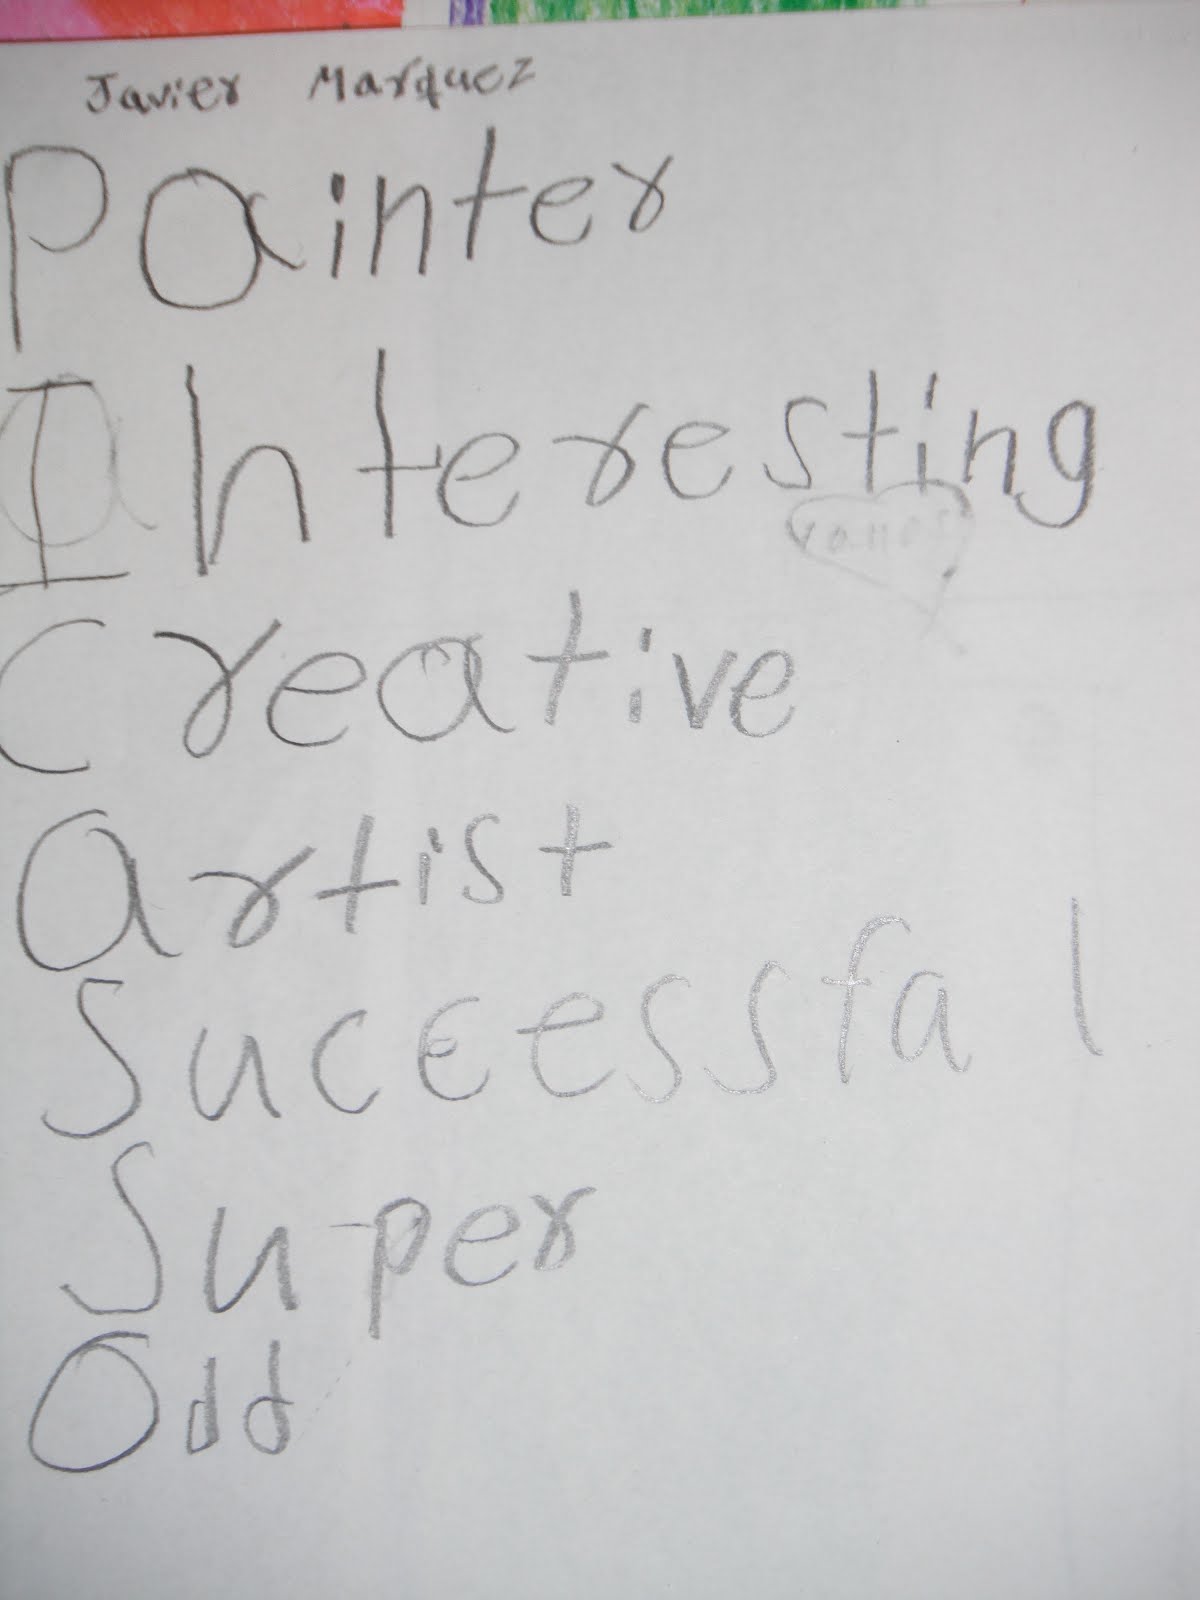 Javier Marquez
Painter
Interesting
Creative
artist
Successfal
Super
Odd